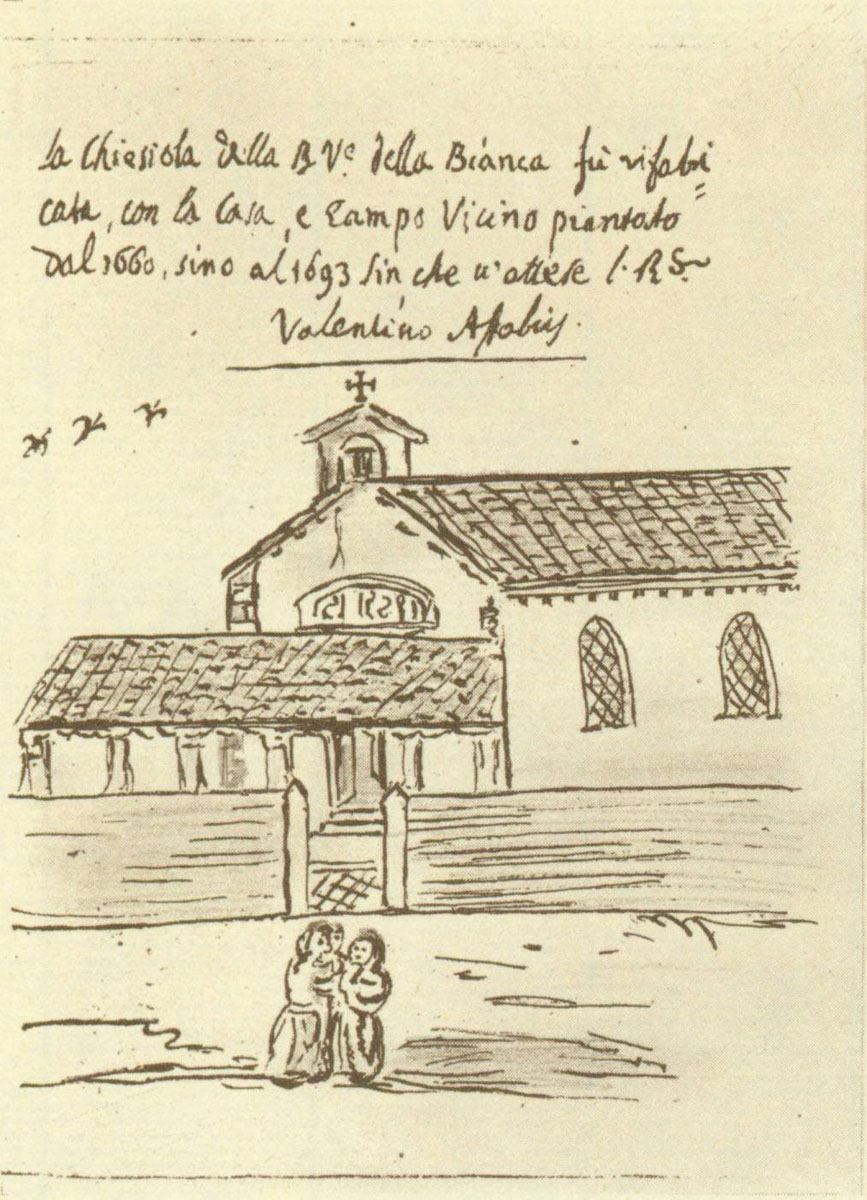 la Chiesiola della B Vᵉ della Bianca fù rifabri
cata, con la Casa, e Campo Vicino piantato
dal 1660, sino al 1693 sin che v'attese l.
Valentino